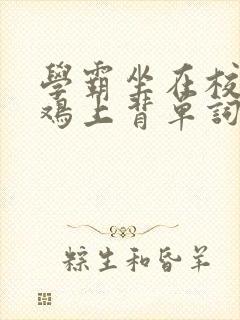 學霸坐在校
鸡上背單詞
粽生和昏羊